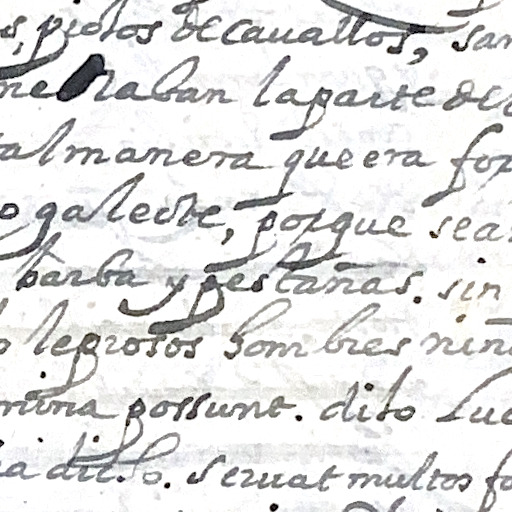 s, piojos de cauallos, san
laban laparte del
talmanera queera for
o galeote, porque sea
barba y pestañas. sin
leprosos hombres niñ
mina possunt. dito Luc
seruat multos fo